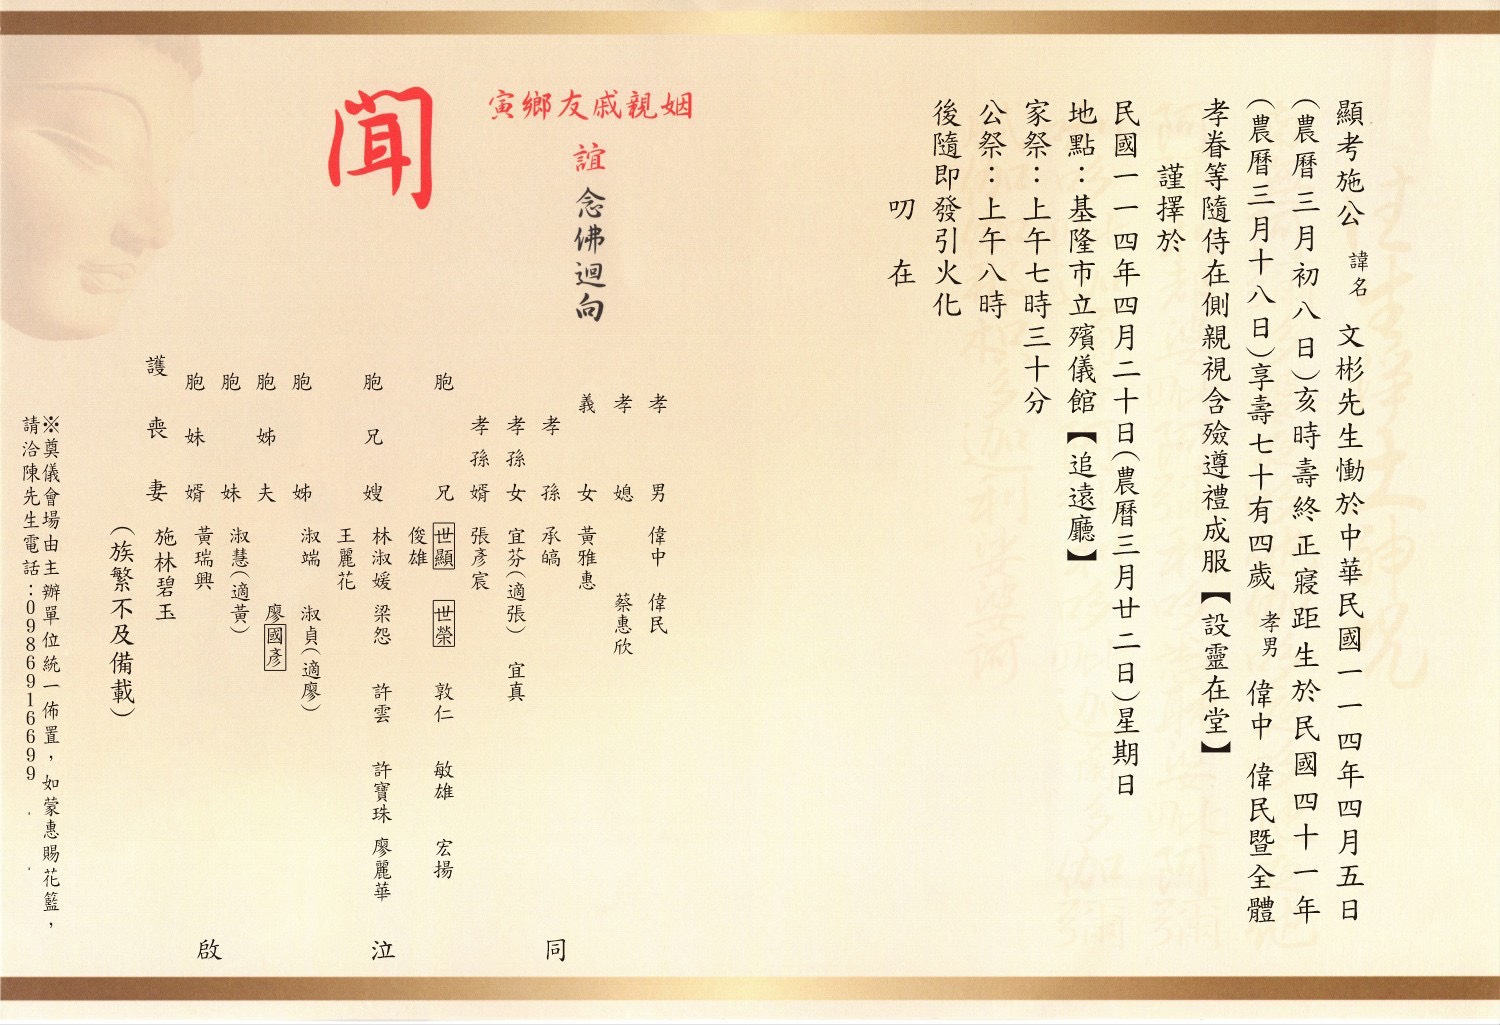 顯考施公 諱名 文彬先生慟於中華民國一一四年四月五日
(農曆三月初八日)亥時壽終正寢距生於民國四十一年
(農曆三月十八日)享壽七十有四歲 孝男 偉中 偉民暨全體
孝眷等隨侍在側親視含殮遵禮成服【設靈在堂】
謹擇於
民國一一四年四月二十日(農曆三月廿二日)星期日
地點：基隆市立殯儀館【追遠廳】
家祭：上午七時三十分
公祭：上午八時
後隨即發引火化
叨在
姻親戚友鄉寅
誼 念佛迴向
聞
孝男 偉中 偉民
孝媳 蔡惠欣
義女 黃雅惠
孝孫 承皜
孝孫女 宜芬(適張) 宜真
孝孫壻 張彥宸
胞兄 世顯 世榮 敦仁 敏雄 宏揚
俊雄
胞兄嫂 林淑媛 梁怨 許雲 許寶珠 廖麗華
王麗花
胞姊 淑端 淑貞(適廖)
胞姊夫 廖國彥
胞妹 淑慧(適黃)
胞妹婿 黃瑞興
護喪妻 施林碧玉
(族繁不及備載)
同泣啟
※奠儀會場由主辦單位統一佈置，如蒙惠賜花籃，
請洽陳先生電話：0986916699